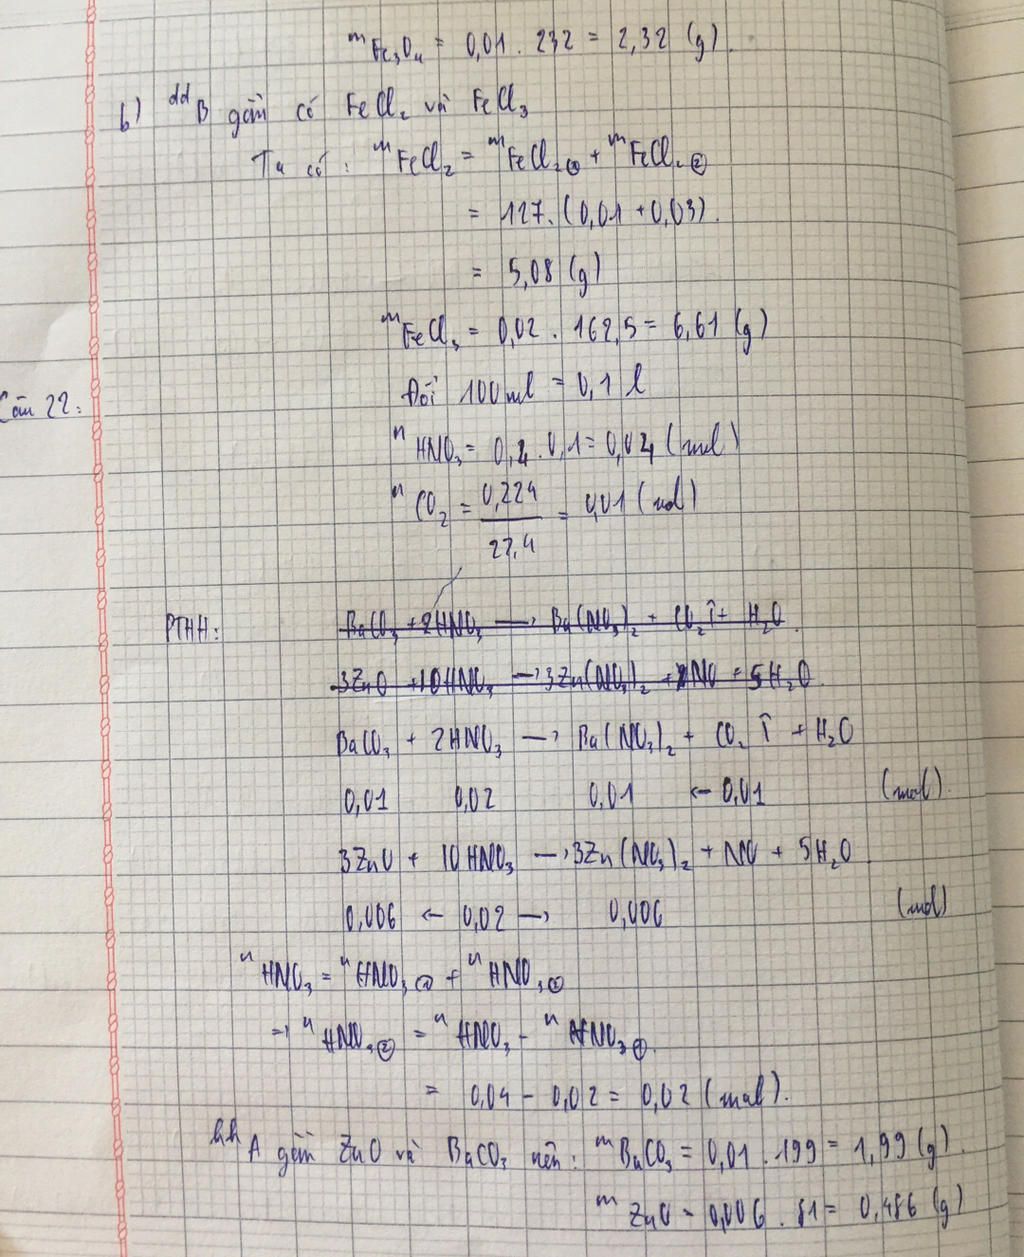 mFe₃O₄ = 0,01 . 232 = 2,32 (g).
b) ddB gồm có FeCl₂ và FeCl₃
Ta có: mFeCl₂ = mFeCl₂① + mFeCl₂②
= 127.(0,01 + 0,03).
= 5,08 (g)
mFeCl₃ = 0,02 . 162,5 = 6,61 (g)
Đổi 100ml = 0,1 l
Câu 22:
nHNO₃ = 0,4 . 0,1 = 0,04 (mol)
nCO₂ = 0,224 / 22,4 = 0,01 (mol)
PTHH: BaCO₃ + 2HNO₃ → Ba(NO₃)₂ + CO₂↑ + H₂O.
3ZnO + 10HNO₃ → 3Zn(NO₃)₂ + 2NO + 5H₂O.
BaCO₃ + 2HNO₃ → Ba(NO₃)₂ + CO₂↑ + H₂O
0,01 0,02 0,01 ← 0,01 (mol).
3ZnO + 10HNO₃ → 3Zn(NO₃)₂ + NO + 5H₂O.
0,006 ← 0,02 → 0,006 (mol)
nHNO₃ = nHNO₃① + nHNO₃②
→ nHNO₃② = nHNO₃ - nHNO₃①.
= 0,04 - 0,02 = 0,02 (mol).
hhA gồm ZnO và BaCO₃ nên: mBaCO₃ = 0,01 . 199 = 1,99 (g).
mZnO = 0,006 . 81 = 0,486 (g)